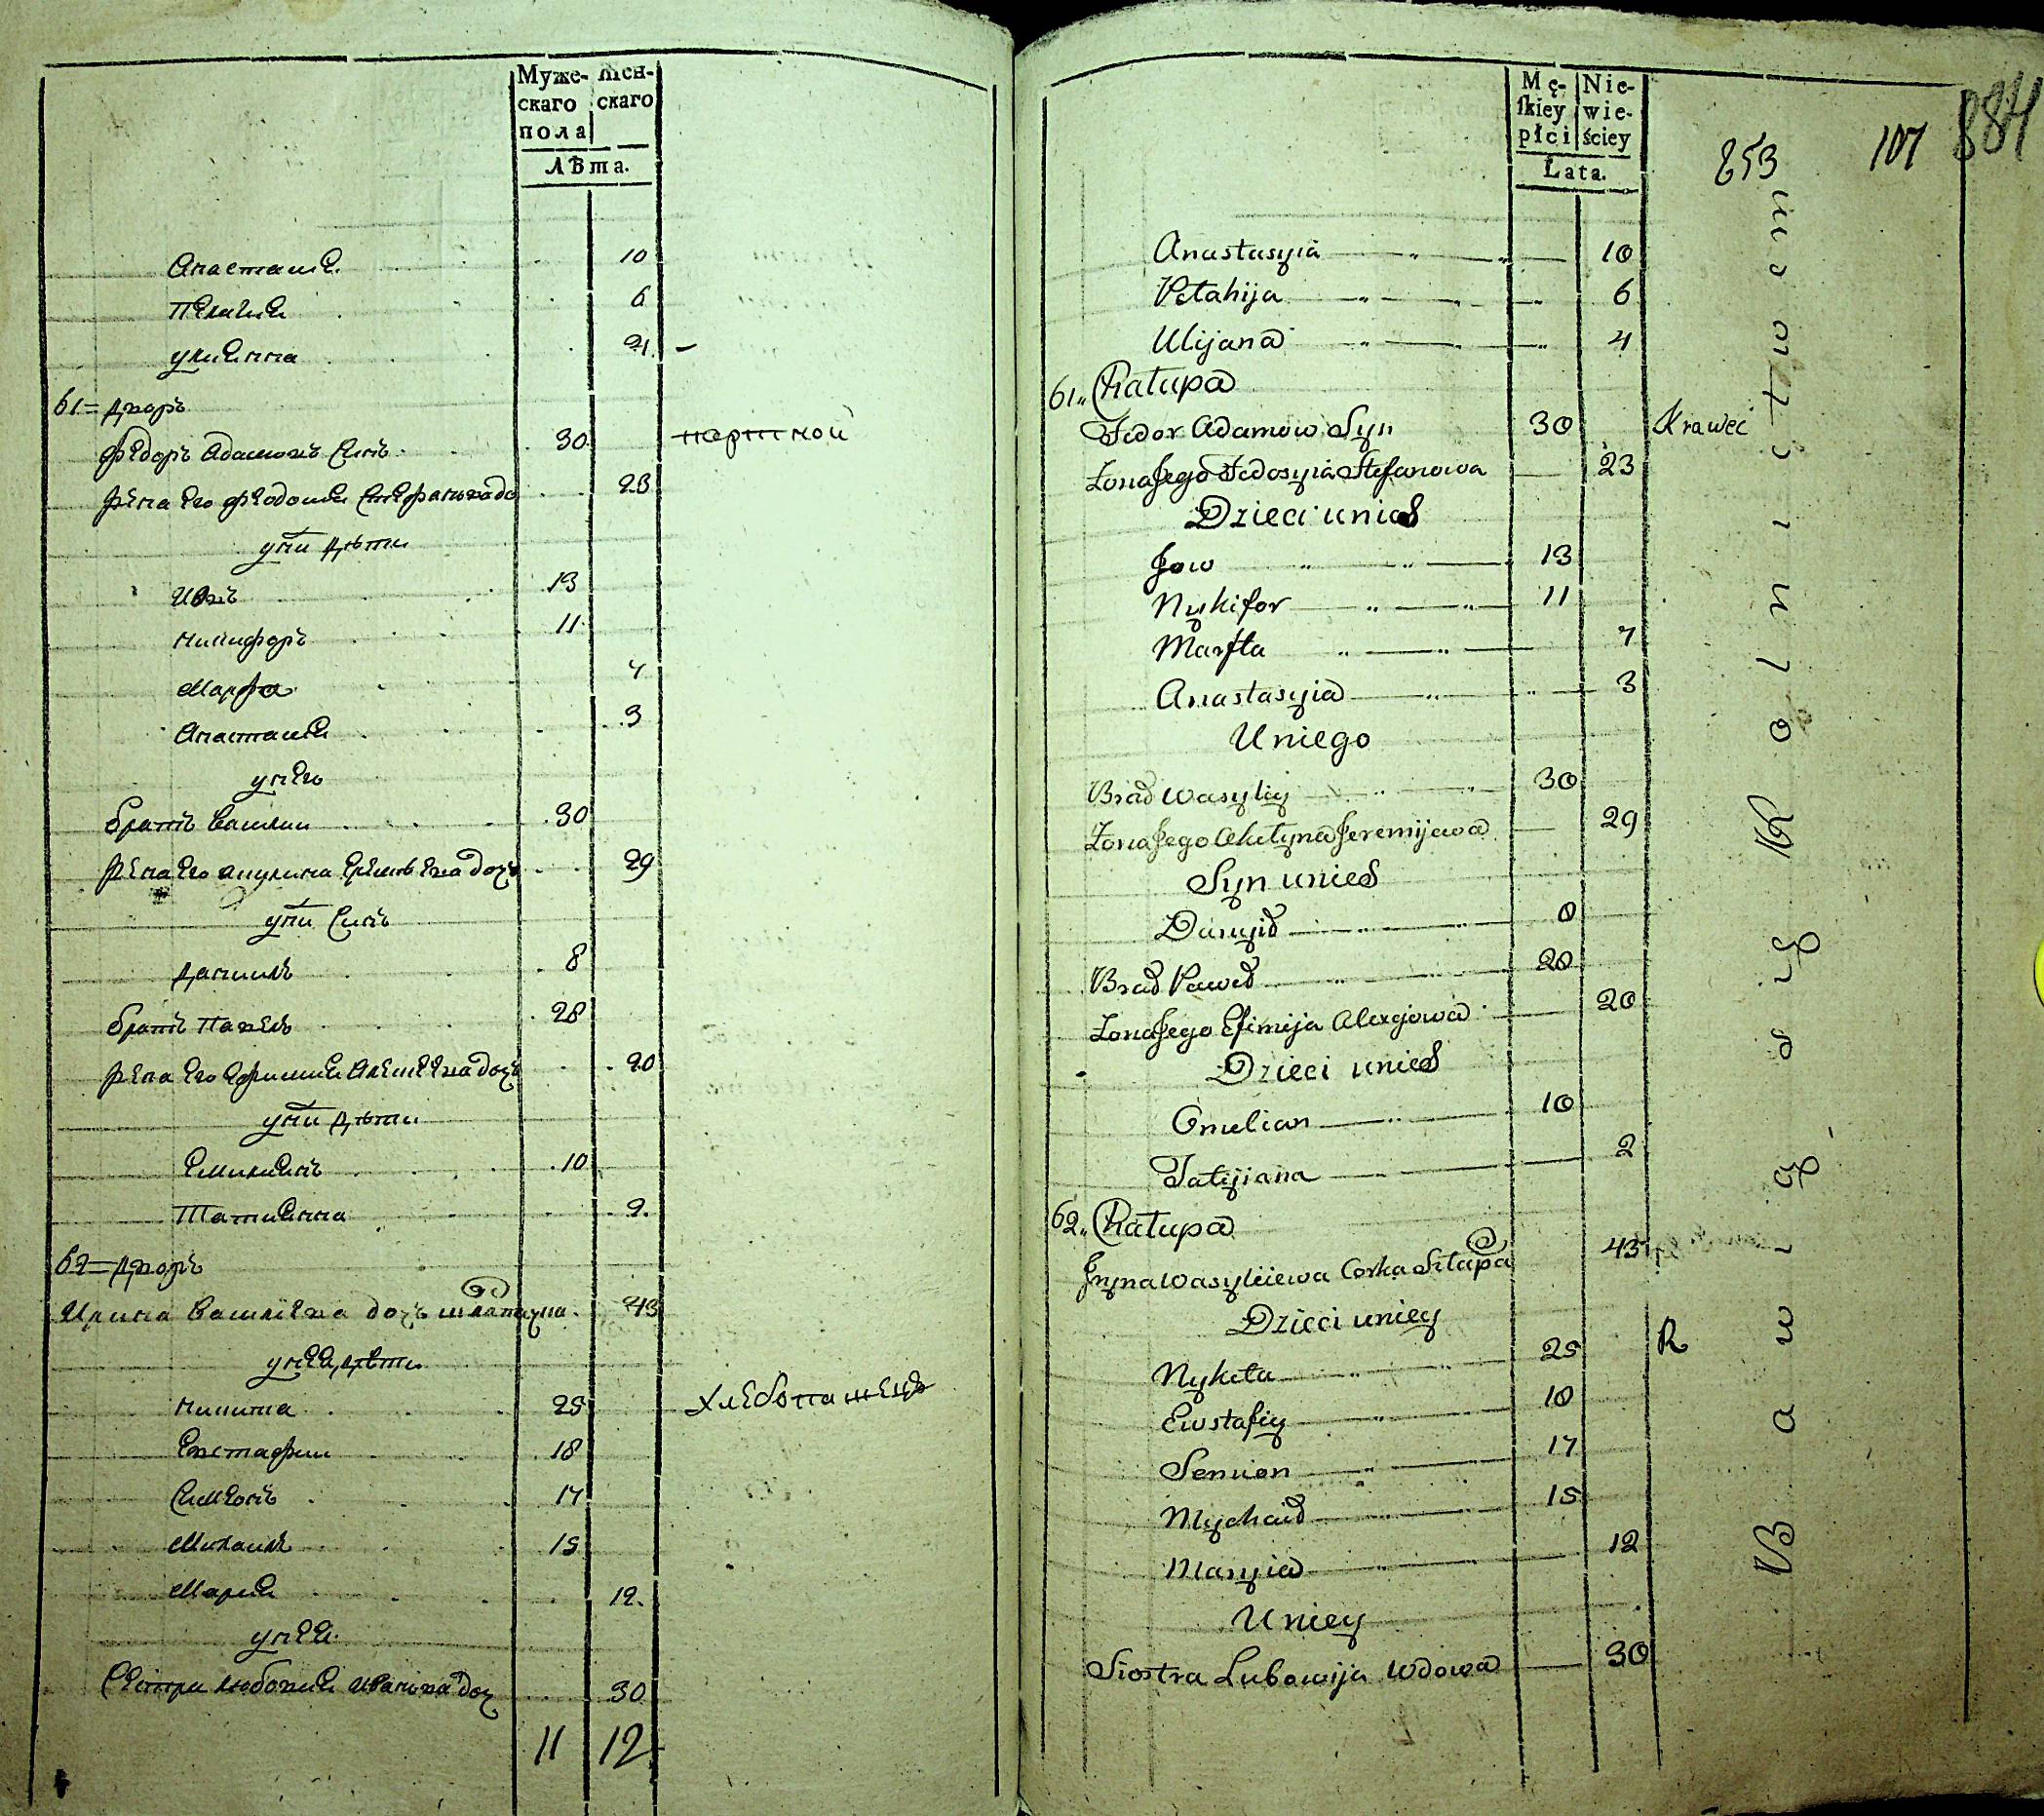 Муже- скаго пола
Жен- скаго
Лѣта.
Анастасия 10
Пелагия 6
улиянна 4
61 = дворъ
Федоръ Адамовъ Синъ 30 портной
жена Его Феодосия Стефанова до 23
у них дѣти
Иовъ 13
никифоръ 11
Марфа 7
Анастасия 3
у него
братъ Василии 30
жена Его акулина Еремѣева дочь 29
у них Синъ
данилъ 8
братъ павелъ 28
жена Его Ефимия Алексѣева дочь 20
у них дѣти
Емилиянъ 10
Татиянна 2
62 = дворъ
Ирина Василиева дочь 43
у нея дѣти
никита 25 хлебопашецъ
Евстафии 18
Симеонъ 17
Михаилъ 15
Мария 12
у нея
Сестра любовия иванова доч 30
11 12
Mę- skiey płci
Nie- wie- ściey
Lata.
853 107 884
Anastasyia 10
Pelahija 6
Ulijana 4
61,, Chałupa
Fedor Adamow Syn 30 Krawec
Zona Jego Fedosyia Stefanowa 23
Dzieci unich
Jow 13
Nykifor 11
Marfta 7
Anastasyia 3
Uniego
Brad Wasyliy 30
Zona Jego Akulyna Jeremijewa 29
Syn unich
Danyid 8
Brad Pawed 28
Zona Jego Efimija Alexyowa 20
Dzieci unich
Omelian 10
Tatyiana 2
62,, Chałupa
Jryna Wasyliiewa Corka 43
Dzieci uniey
Nykita 25 R
Ewstafiy 18
Semion 17
Mychaid 15
Maryia 12
Uniey
Siostra Lubowija Wdowa 30